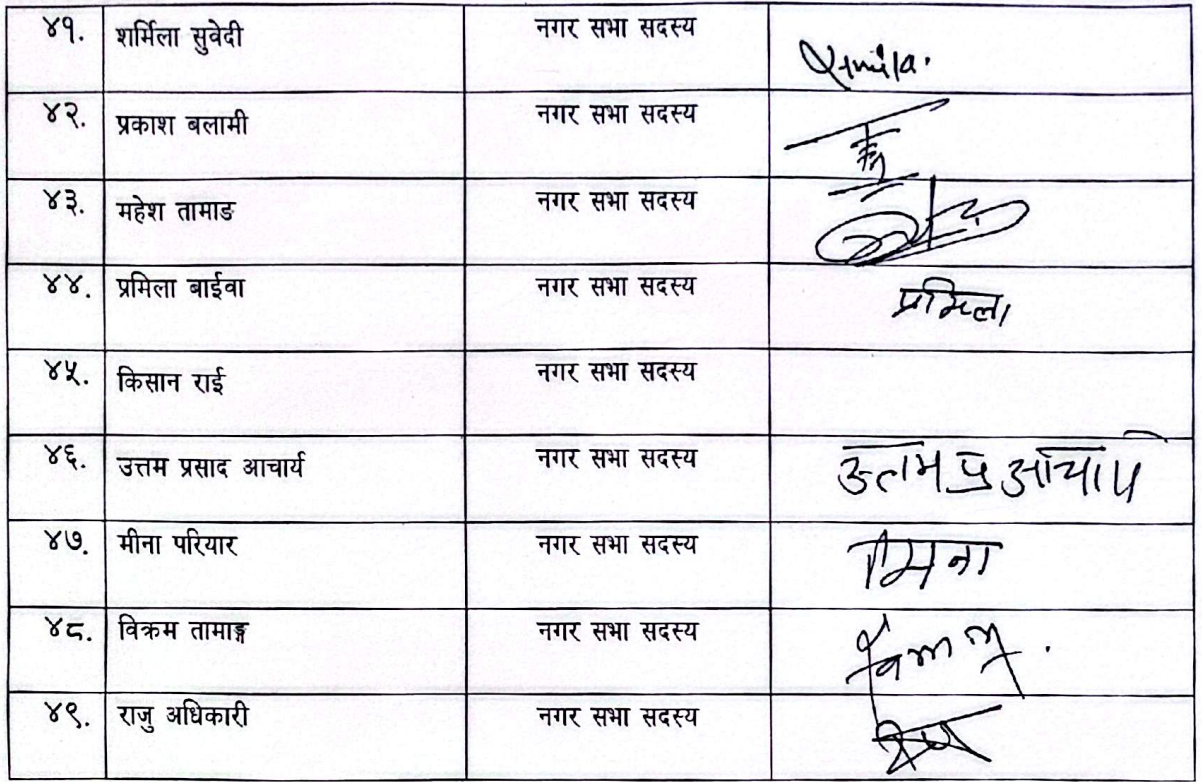 ४१. शर्मिला सुवेदी नगर सभा सदस्य
४२. प्रकाश बलामी नगर सभा सदस्य
४३. महेश तामाङ नगर सभा सदस्य
४४. प्रमिला बाईवा नगर सभा सदस्य प्रमिला
४५. किसान राई नगर सभा सदस्य
४६. उत्तम प्रसाद आचार्य नगर सभा सदस्य उत्तम प्र आचार्य
४७. मीना परियार नगर सभा सदस्य मिना
४८. विक्रम तामाङ्ग नगर सभा सदस्य
४९. राजु अधिकारी नगर सभा सदस्य